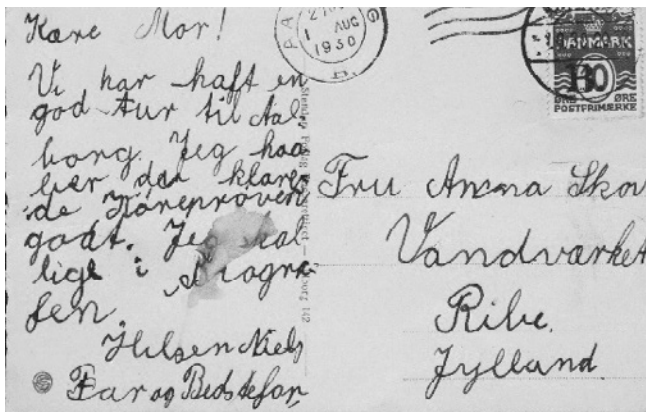 Kære Mor!
Vi har haft en
god tur til Aal
borg. Jeg haa
ber du klare
de Køreprøven
godt. Jeg skal
lige i Biogra
fen
Hilsen Niels
Far og Bedstefar
AUG
1930
DANMARK
10
ØRE ØRE
POSTFRIMÆRKE
Fru Anna Skov
Vandværket
Ribe.
Jylland.